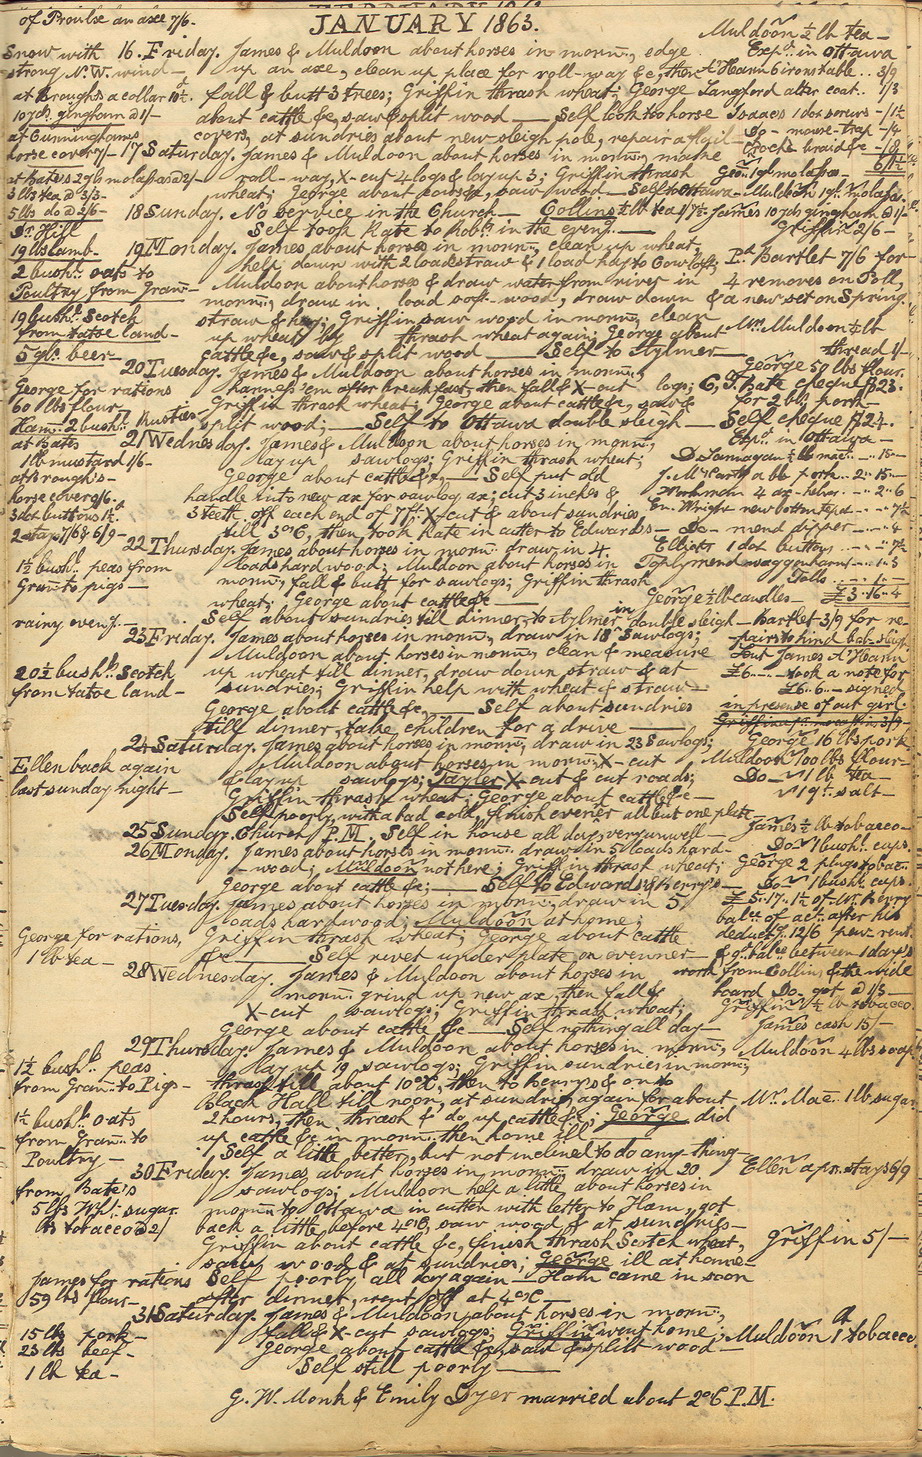 of Proulse an axe 7/6-
JANUARY 1863.
Muldoon ½ lb tea -
Snow with 16. Friday. James & Muldoon about horses in morng., edge Expd. in Ottawa
strong N.W. wind - up an axe, clean up place for roll-way &c, then A'Hearn 6 irons table .. 3/9
at Brough's a collar 10/. fall & butt 3 trees; Griffin thrash wheat; George Langford alter coat .. 1/3
10 yds. gingham @ 1/- about cattle &c, saw & split wood — Self look to horse Isaacs 1 doz screws - /1½
at Cunninghams covers, at sundries about new sleigh pole, repair a flail - Do - mouse-trap - /4
horse cover 7/- 17 Saturday. James & Muldoon about horses in morng., make
at Bates 2 gls molasses @ 2/- roll-way, X-cut 4 logs & lay up 3; Griffin thrash Geo. 1 qt. molasses -
3 lbs tea @ 3/3- wheat; George about cows &c, saw wood - Self to Ottawa - Muldoon 1 qt. molasses
5 lbs do @ 2/6- 18 Sunday. No service in the Church - Collins ½ lb tea 1/7½ - James 10 yds gingham @ 1/-
Dr. Hill Self took Kate to Rob's. in the eveng. — Griffin 2/6 -
19 lbs lamb - 19 Monday. James about horses in morng., clean up wheat,
2 bush. oats to help down with 2 loads straw & 1 load hay to Cow loft; Pd. Bartlet 7/6 for
Poultry from Gran - Muldoon about horses & draw water from river in 4 removes on Poll,
morng., draw in load soft-wood, draw down & a new set on Spring.
19 bush. Scotch straw & hay; Griffin saw wood in morng., clean
from tatoe land - up wheat by thrash wheat again; George about Mrs. Muldoon ½ lb
5 gls. beer - cattle &c, saw & split wood — Self to Aylmer — thread 1/-
20 Tuesday. James & Muldoon about horses in morng., George 50 lbs flour.
George for rations harness 'em after breakfast, then fall & X-cut logs; C, T, Bate cheque £23.
60 lbs flour - Griffin thrash wheat; George about cattle &c, saw & for 2 bls. pork -
Ham: 2 bush. Rustic split wood; — Self to Ottawa double sleigh — Self cheque £24.
at Bates 21 Wednesday. James & Muldoon about horses in morng., Expd. in Ottawa -
1 lb mustard 1/6- lay up sawlogs; Griffin thrash wheat;
at Brough's - George about cattle &c, — Self put old
horse cover 9/6. handle into new ax for sawlog ax; cut 3 inches & Workman 4 ax-helves - .. 2 .. 6
3 doz buttons 1½. 3 teeth off each end of 7 ft X-cut & about sundries Em. Wright new bottom tepot - - 7½
2 caps 7/6 & 6/9 - till 3 oC, then took Kate in cutter to Edwards - Do - mend dipper - - - 4
22 Thursday. James about horses in morng. draw in 4. Elliots 1 doz buttons - - 7½
1½ bush. peas from loads hardwood; Muldoon about horses in
Gran: to pigs - morng., fall & butt for sawlogs; Griffin thrash Tolls ..... 1 ...
wheat; George about cattle &c — George ½ lb candles - £3 .. 16 .. 4
rainy eveng. - Self about sundries till dinner, to Aylmer in double sleigh - Bartlet 3/9 for re-
23 Friday. James about horses in morng., draw in 18 Sawlogs; -pairs to hind bob-sleigh
Muldoon about horses in morng., clean & measure Lent James A'Hearn
20½ bush. Scotch up wheat till dinner, draw down straw & at £6 - - - took a note for
from tatoe land - sundries; Griffin help with wheat & straw - £6 .. 6 - signed
George about cattle &c, — Self about sundries in presense of out girl.
till dinner, take children for a drive —
24 Saturday. James about horses in morng., draw in 23 Sawlogs; George 16 lbs pork
Ellen back again Muldoon about horses in morng., X-cut Muldoon 100 lbs flour -
last sunday night - & lay up sawlogs; Tayler X-cut & cut roads; Do - 1 lb tea -
Griffin thrash wheat; George about cattle &c - " 1 qt. salt -
Self poorly with a bad cold, finish evener all but one plate -
25 Sunday. Church P.M. Self in house all day, very unwell - James ½ lb tobacco -
26 Monday. James about horses in morng. draw in 5 loads hard- Do - 1 bush. cups.
-wood; Muldoon not here; Griffin thrash wheat; George 2 plugs tobac.
George about cattle &c; — Self to Edwards & Henry's - Do - 1 bush. cups
27 Tuesday. James about horses in morng., draw in 5, £5 .. 17 .. 1½ of W. Henry
loads hardwood; Muldoon at home; balce. of act. after his
George for rations, Griffin thrash wheat; George about cattle deductg. 12/6 pew-rent
1 lb tea - &c — Self rivet under plate on evener -
28 Wednesday. James & Muldoon about horses in work from Collins, & the wide
morng. grind up new ax, then fall & board Do- got @ 1/3 -
X-cut sawlogs; Griffin thrash wheat; Griffin ½ lb tobacco
George about cattle &c — Self nothing all day - James cash 15/-
29 Thursday. James & Muldoon about horses in morng., Muldoon 4 lbs soap
1½ bush. peas lay up 19 sawlogs; Griffin sundries in morng.,
from Gran: to Pigs - thrash till about 10 oC, then to Henry's & on to
Black Hall till noon, at sundries again for about Mr. Mac - 1 lb sugar
1½ bush. oats 2 hours, then thrash & do up cattle &c; George did
from Gran: to up cattle &c in morng. then home ill —
Poultry - Self a little better, but not inclined to do any-thing
30 Friday. James about horses in morng. draw in 20 Ellen apn. stays 6/9
from Bate's sawlogs; Muldoon help a little about horses in
5 lbs Wht. sugar. morng. to Ottawa in cutter with letter to Ham, got
lbs tobacco @ 2/ back a little before 4 oC, saw wood & at sundries -
Griffin about cattle &c, finish thrash Scotch wheat, Griffin 5/-
saw wood & at sundries; George ill at home -
James for rations Self poorly all day again — Ham came in soon
59 lbs flour - after dinner, went off at 4 oC —
31 Saturday. James & Muldoon about horses in morng.,
15 lbs pork - fall & X-cut sawlogs; Griffin went home; Muldoon 1 lb tobacco
23 lbs beef - George about cattle &c, saw & split wood —
1 lb tea - Self still poorly —
G. W. Monk & Emily Dyer married about 2 oC P.M.